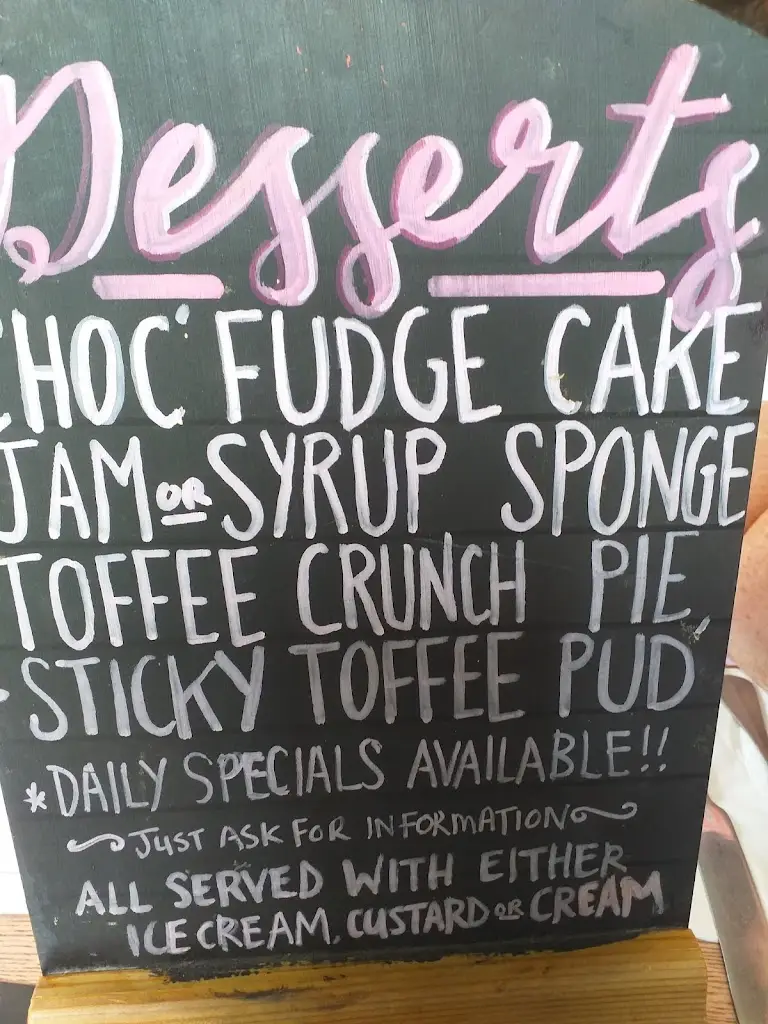 Desserts
CHOC' FUDGE CAKE
JAM OR SYRUP SPONGE
TOFFEE CRUNCH PIE
STICKY TOFFEE PUD
*DAILY SPECIALS AVAILABLE!!
~JUST ASK FOR INFORMATION~
ALL SERVED WITH EITHER
ICE CREAM, CUSTARD OR CREAM